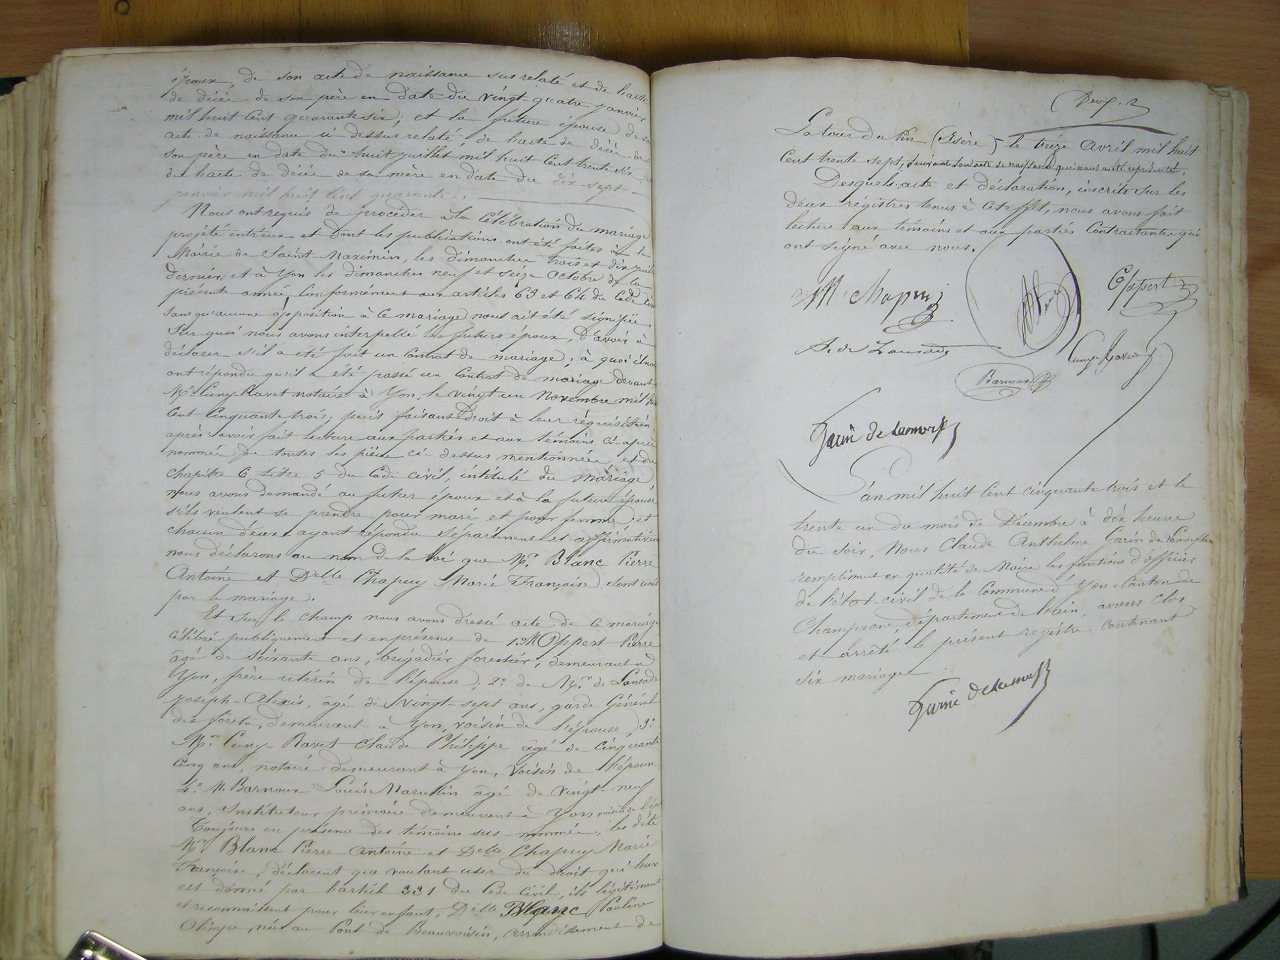 époux, de son acte de naissance sus relaté et de l'acte
de décès de son père en date du vingt quatre janvier
mil huit cent quarante six; et la future épouse de son
acte de naissance ci dessus relaté, de l'acte de décès de
son père en date du huit juillet mil huit cent trente six
de l'acte de décès de sa mère en date du dix sept
janvier mil huit cent quarante.
Nous ont requis de procéder à la célébration du mariage
projeté entr'eux et dont les publications ont été faites à la
Mairie de Saint Maximin, les dimanches trois et dix juillet
dernier, et à Yon les dimanches neuf et seize Octobre de la
présente année, conformément aux articles 63 et 64 du Code Civil
sans qu'aucune opposition à ce mariage nous ait été signifiée
Sur quoi nous avons interpellé les futurs époux, d'avoir à
déclarer s'il a été fait un contrat de mariage; à quoi ils nous
ont répondu qu'il a été passé un Contrat de mariage devant
Me Cuny Ravet notaire à Yon, le vingt un Novembre mil huit
cent cinquante trois; puis faisant droit à leur réquisition
après avoir fait lecture aux parties et aux témoins ci après
nommés de toutes les pièces ci dessus mentionnées et du
chapitre 6 titre 5 du Code civil, intitulé du mariage
nous avons demandé au futur époux et à la future épouse
s'ils veulent se prendre pour mari et pour femme; et
chacun d'eux ayant répondu séparément et affirmativement
nous déclarons au nom de la loi que Mr. Blanc Pierre
Antoine et Delle Chapuy Marie Françoise, sont unis
par le mariage.
Et sur le champ nous avons dressé acte de ce mariage
célébré publiquement et en présence de 1° M Oppert Pierre
âgé de soixante ans, brigadier forestier, demeurant à
Yon, frère utérin de l'épouse, 2° de Mr. de
Joseph Alexis, âgé de vingt sept ans, garde Général
des forêts, demeurant à Yon, voisin de l'épouse, 3°
Mr. Cuny Ravet Claude Philippe âgé de cinquante
cinq ans, notaire demeurant à Yon, voisin de l'épouse
4° M. Barnoux Louis Marcellin âgé de vingt neuf
ans, Instituteur primaire demeurant à Yon
Toujours en présence des témoins sus-nommés, les dits
Mr. Blanc Pierre Antoine et Delle Chapuy Marie
Françoise, déclarent que voulant user du droit qui leur
est donné par l'article 331 du Code Civil, ils légitiment
et reconnaissent pour leur enfant, Delle Blanc Pauline
Olimpe, née au Pont de Beauvoisin, arrondissement de
La tour du Pin (Isère) le onze Avril mil huit
cent trente sept, suivant son acte de naissance qui nous a été représenté.
Desquels acte et déclaration, inscrits sur les
deux registres tenus à cet effet, nous avons fait
lecture aux témoins et aux parties Contractantes qui
ont signé avec nous.
Chapuy
Oppert
Cuny Ravet
Garin de Lamorf
L'an mil huit cent cinquante trois et le
trente un du mois de Décembre à dix heures
du soir, Nous Claude Anthelme Garin de
remplissant en qualité de Maire les fonctions d'officier
de l'état civil de la Commune d'Yon, Canton de
Champagne, département de l'ain, avons clos
et arrêté le présent registre contenant
six mariages
Garin de Lamorf